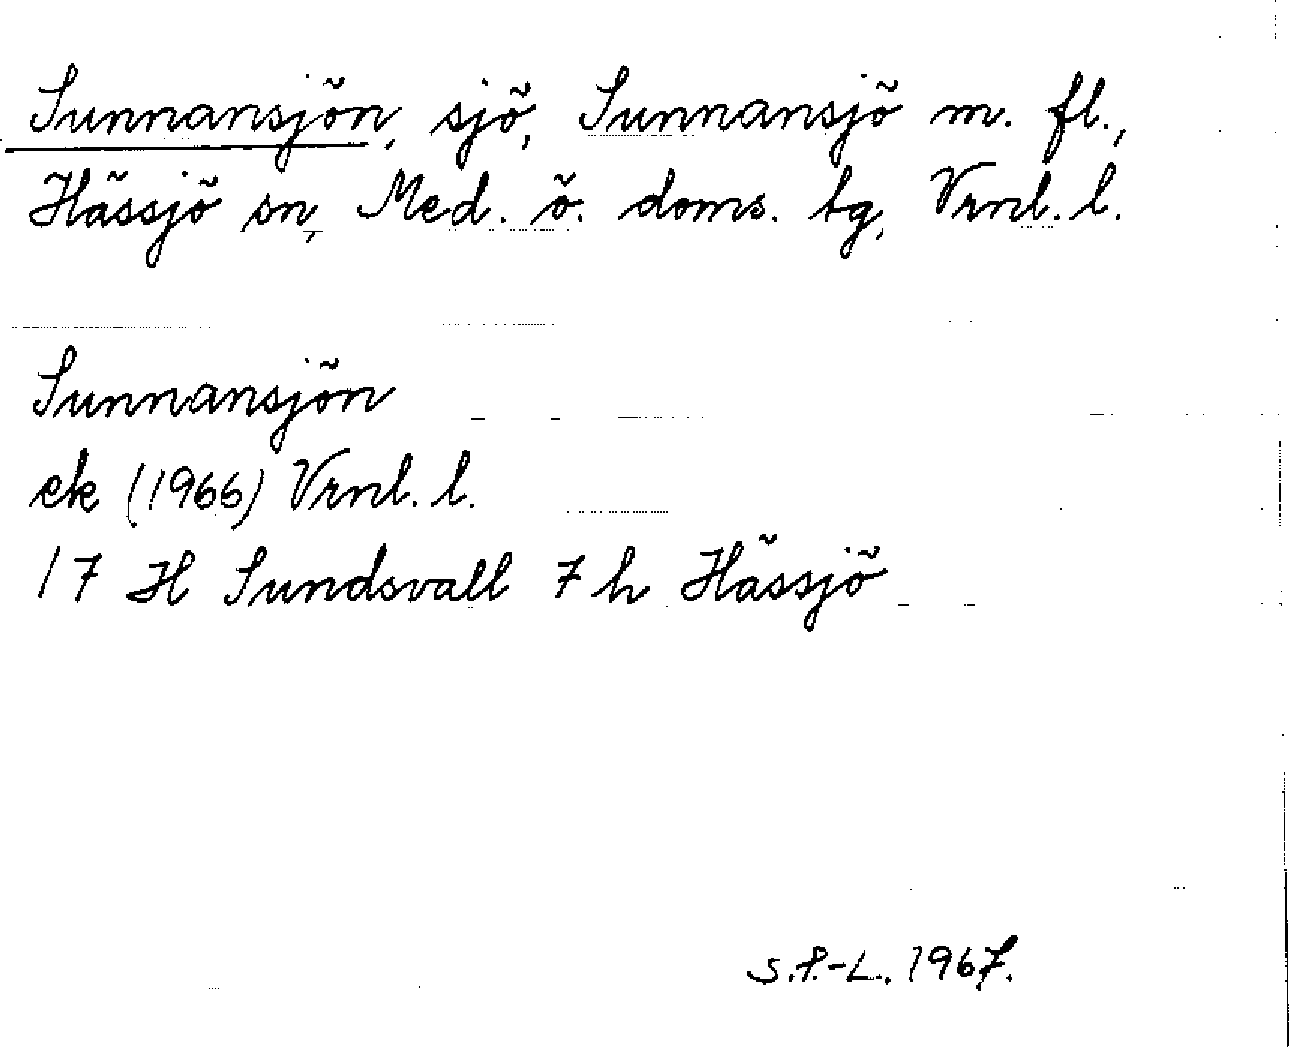 Sunnansjön, sjö, Sunnansjö m. fl.,
Hässjö sn, Med. ö. doms. tg, Vrnl. l.
Sunnansjön
ek (1966) Vrnl. l.
17 H Sundsvall 7 h Hässjö
S.P.-L. 1967.